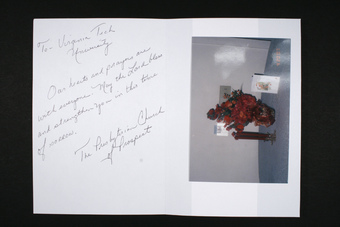 To - Virginia Tech
Community
Our hearts and prayers are
with everyone. May the Lord bless
and strengthen you in this time
of sorrow.
The Presbyterian Church
of Prospect